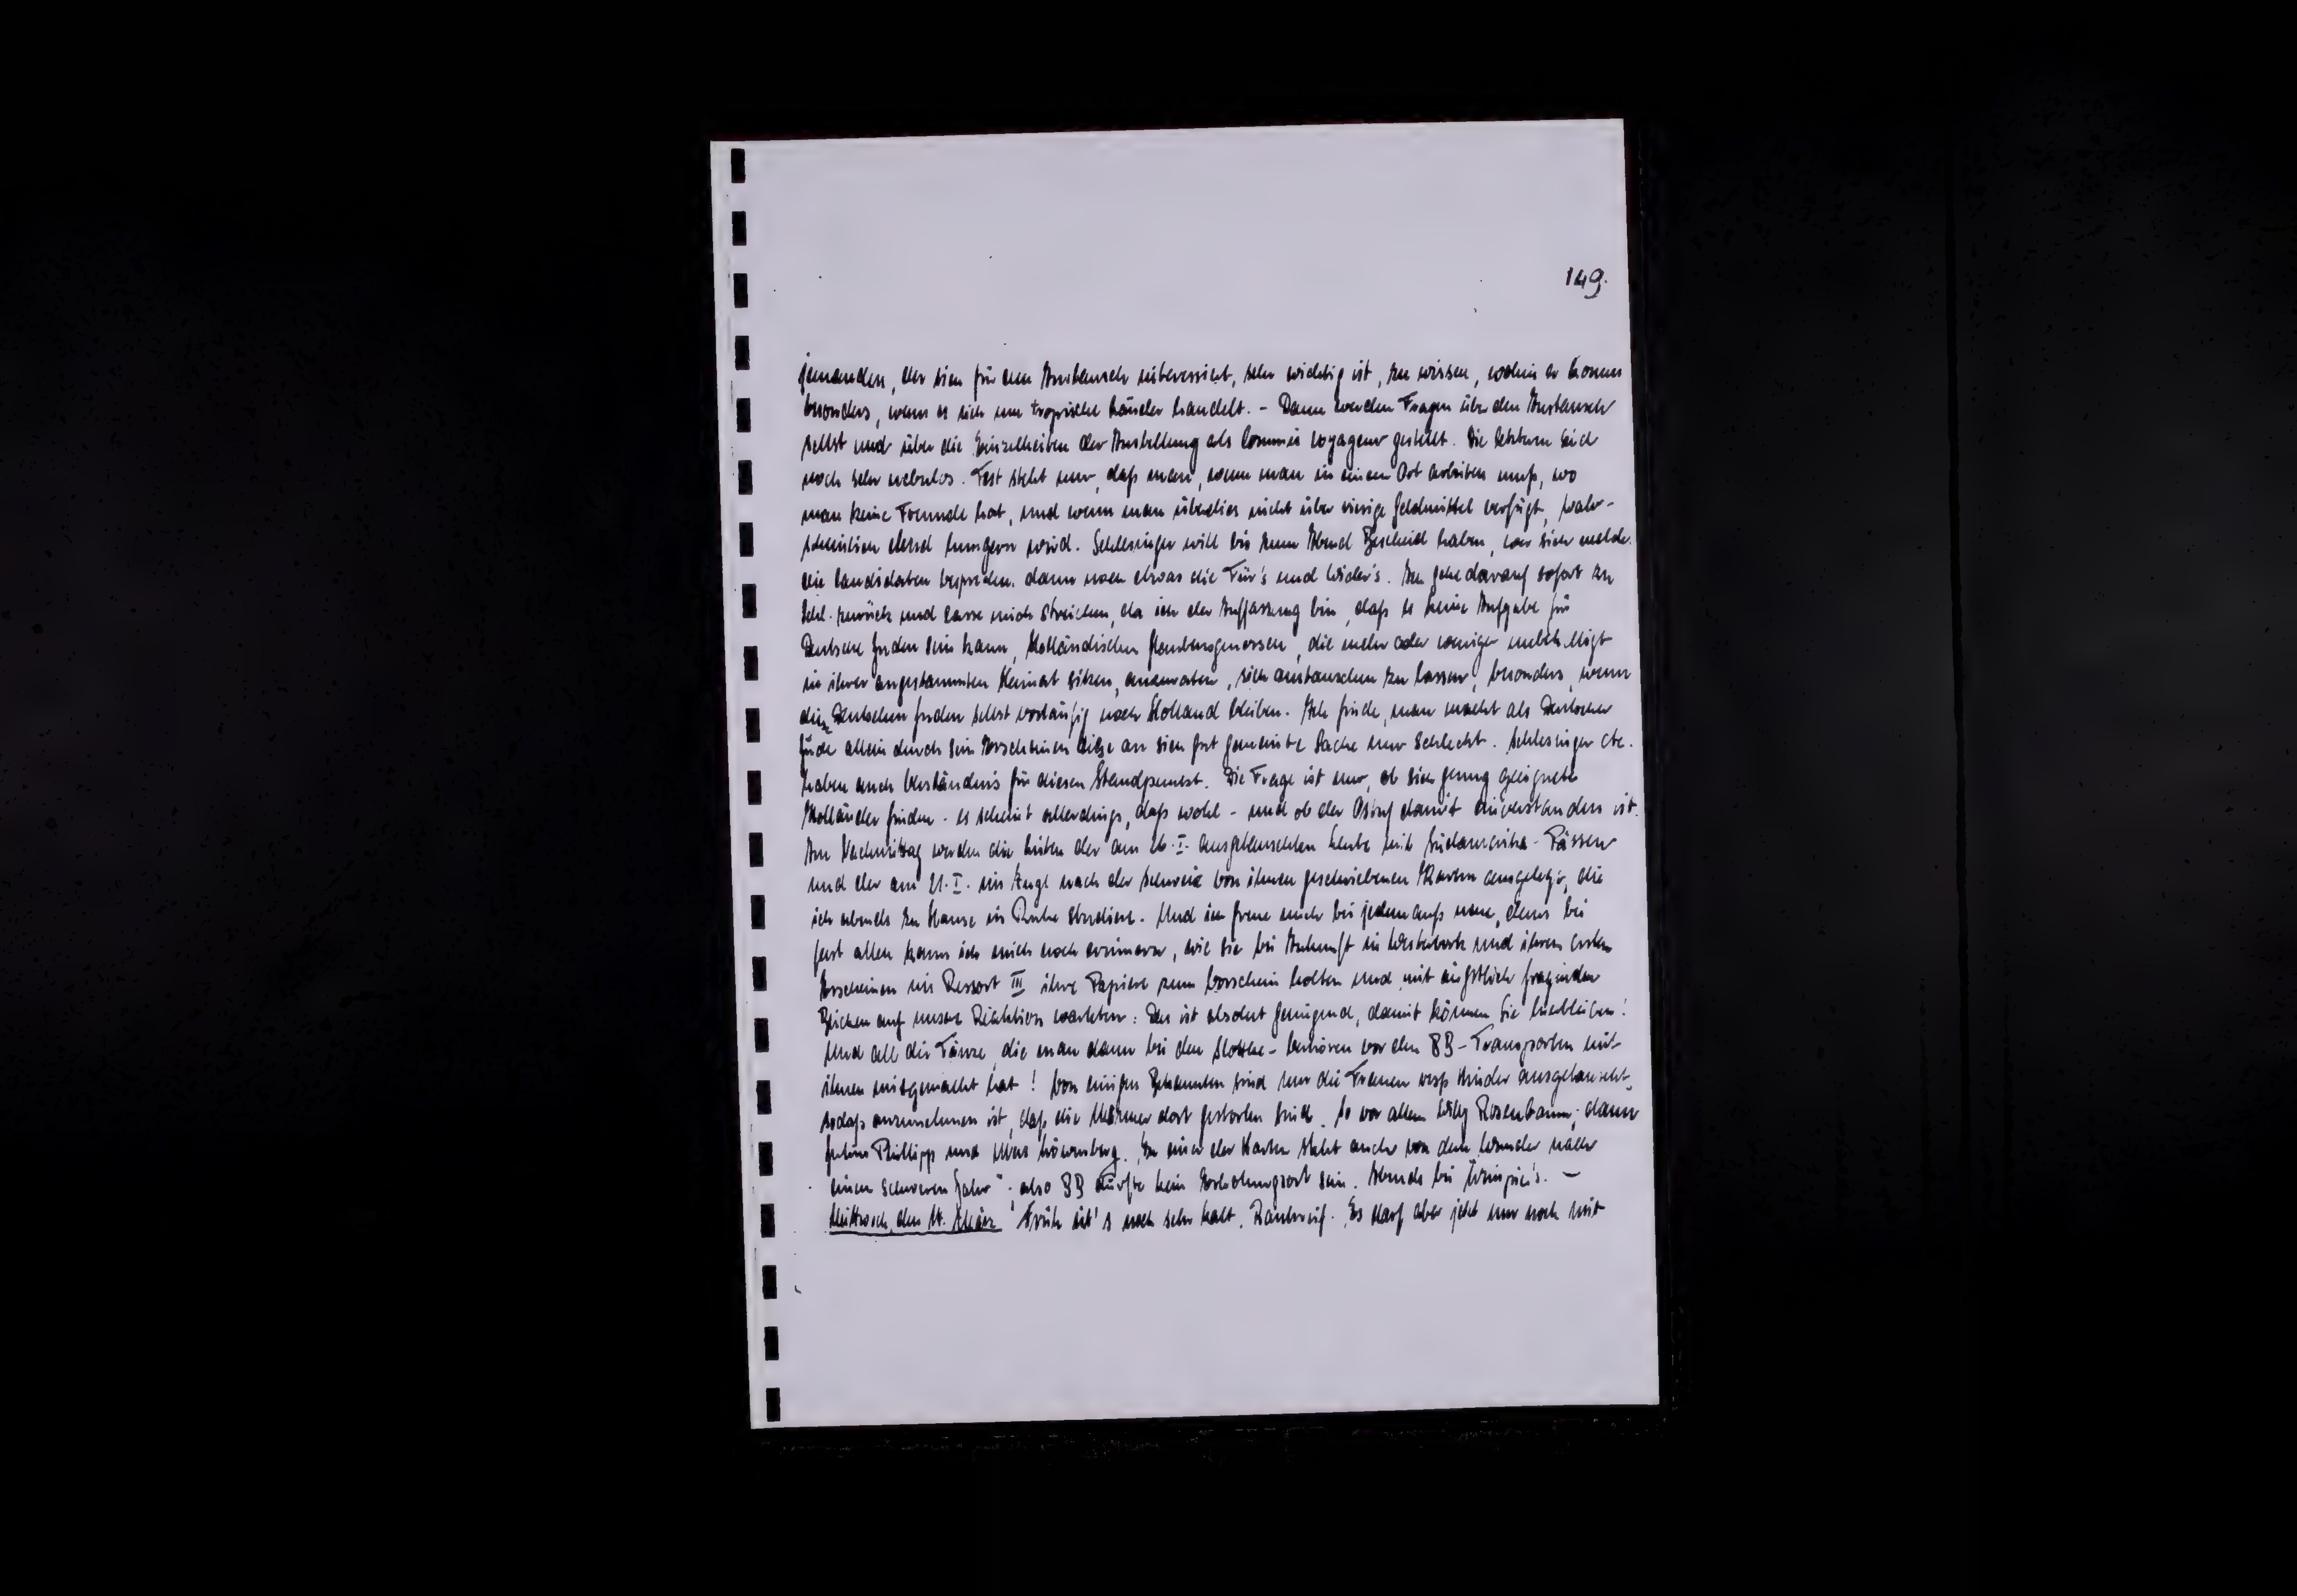 149.
jemanden, der sich für den Austausch interessiert, sehr wichtig ist, zu wissen, wohin er kommt
besonders, wenn es sich um tropische Länder handelt. - Dann werden Fragen über den Austausch
selbst und über die Einzelheiten der Anstellung als Commis voyageur gestellt. Die letztern sind
noch sehr nebulos. Fest steht nur, daß man, wenn man in einem Ort arbeiten muß, wo
man keine Freunde hat, und wenn man überdies nicht über einige Geldmittel verfügt, wahr-
scheinlich elend hungern wird. Schlesinger will bis zum Abend Bescheid haben, wer sich melde.
Die Candidaten besprechen dann noch etwas die Für's und Wider's. Ich gehe darauf sofort zu
Schl. zurück und lasse mich streichen, da ich der Auffassung bin, daß es keine Aufgabe für
Deutsche Juden sein kann, Holländischen Glaubensgenossen, die mehr oder weniger unbehelligt
in ihrer angestammten Heimat sitzen, anzuraten, sich austauschen zu lassen, besonders, wenn
die Deutschen Juden selbst vorläufig noch Holland bleiben. Ich finde, man macht als Deutscher
Jude allein durch sein Erscheinen diese an sich gut gemeinte Sache nur schlecht. Schlesinger etc.
haben auch Verständnis für diesen Standpunkt. Die Frage ist nur, ob sich genug geeignete
Holländer finden - es scheint allerdings, daß wohl - und ob der Ostuf damit einverstanden ist.
Am Nachmittag werden die Listen der am 26.I. ausgetauschten Leute mit Südamerika-Pässen
und der am 21.I. im Zuge nach der Schweiz von ihnen geschriebenen Karten ausgelegt, die
ich abends zu Hause in Ruhe studiere. Und ich freue mich bei jedem aufs neue, denn bei
fast allen kann ich mich noch erinnern, wie sie bei Ankunft in Westerbork und ihrem ersten
Erscheinen im Ressort III ihre Papiere zum Vorschein holten und mit ängstlich fragenden
Blicken auf unsere Reaktion warteten: Das ist absolut genügend, damit können Sie hierbleiben!
Und all die Tänze, die man dann bei den Slottke-Verhören vor den BB-Transporten mit
ihnen mitgemacht hat! Von einigen Bekannten sind nur die Frauen resp Kinder ausgetauscht,
sodaß anzunehmen ist, daß die Männer dort gestorben sind. So vor allem Willy Rosenbaum, dann
Julius Philipp und Löwenberg. In einer der Karten steht auch von dem Wunder nach
einem schweren Jahr", also BB dürfte kein Erholungsort sein. Abends bei . -
Mittwoch, den 14. März Früh ist's noch sehr kalt, Rauhreif. Es darf aber jetzt nur noch mit